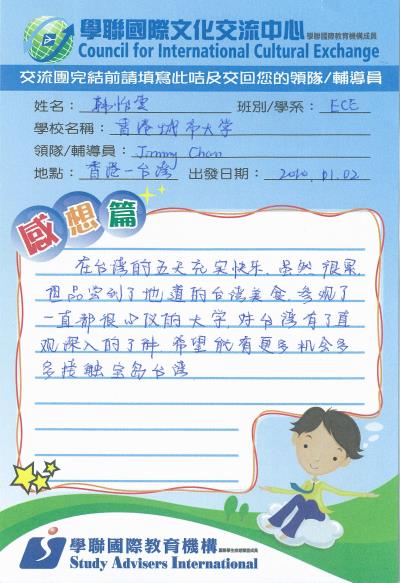 學聯國際文化交流中心 學聯國際教育機構成員
Council for International Cultural Exchange
交流團完結前請填寫此咭及交回您的領隊/輔導員
姓名： 韩怡雲 班別/學系： ECE
學校名稱： 香港城市大学
領隊/輔導員： Jimmy Chan
地點： 香港一台湾 出發日期： 2010.01.02
感想篇
在台湾的五天充实快乐. 虽然很累,
但品尝到了地道的台湾美食. 参观了
一直都很心仪的大学. 对台湾有了直
观深入的了解. 希望能有更多机会多
多接触宝岛台湾
學聯國際教育機構
Study Advisers International